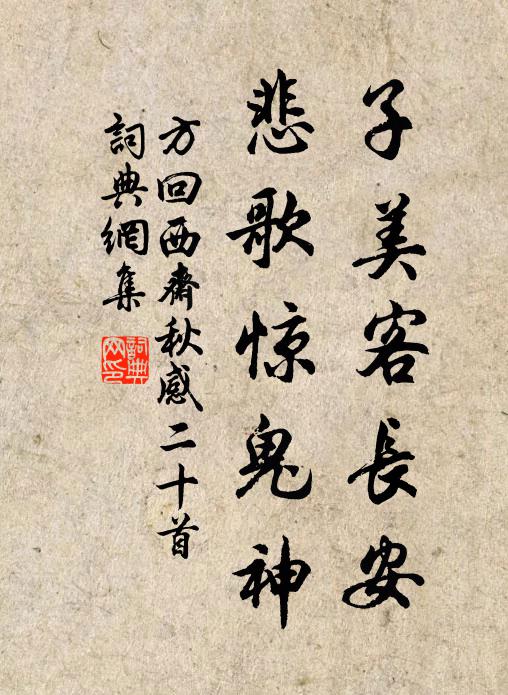 子美客長安
悲歌惊鬼神
方回西齋秋感二十首
詞典網集
詞典网印